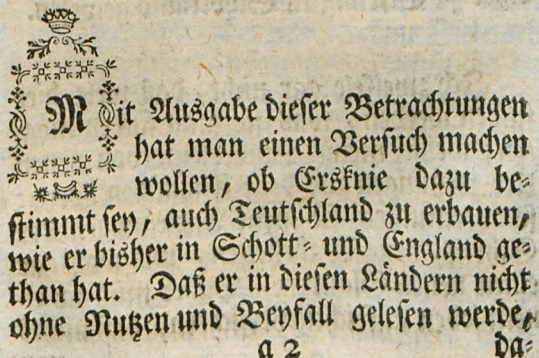 Mit Ausgabe dieser Betrachtungen
hat man einen Versuch machen
wollen, ob Ersknie dazu be-
stimmt sey, auch Teutschland zu erbauen,
wie er bisher in Schott- und England ge-
than hat. Daß er in diesen Ländern nicht
ohne Nutzen und Beyfall gelesen werde,
a 2 da-